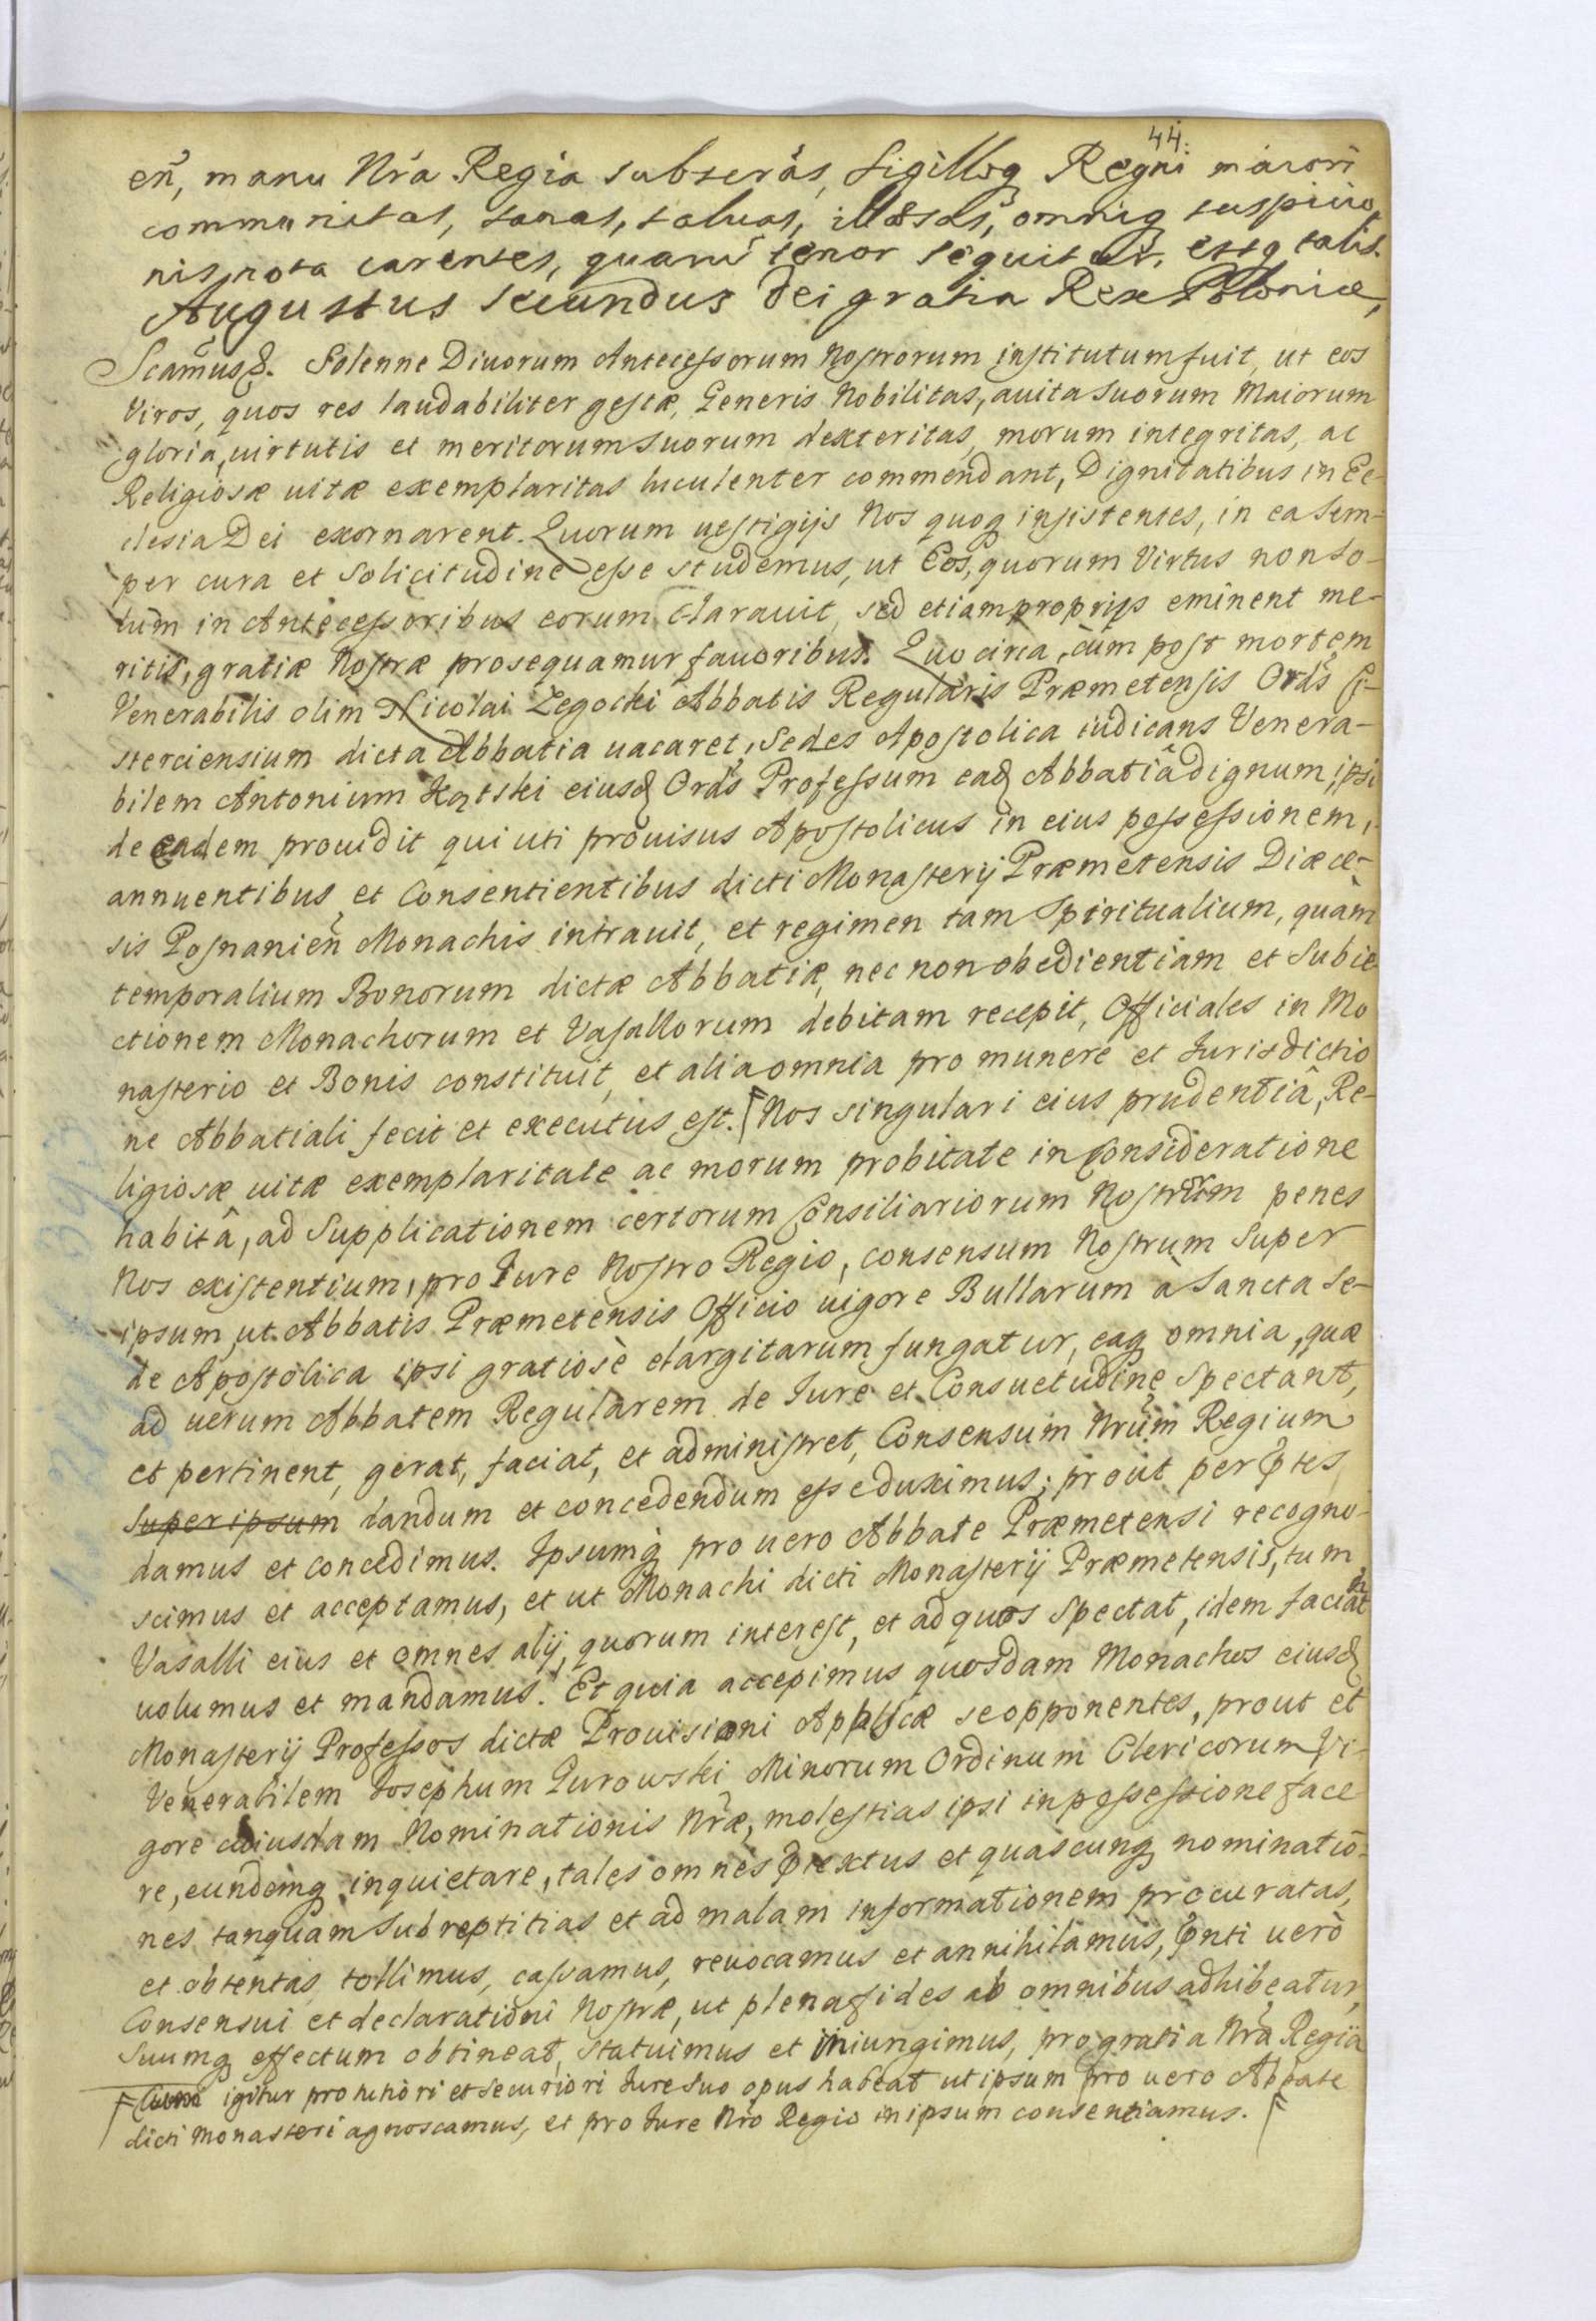 44.
eñ, manu Nra Regia subscrãs, Sigilloq Regni maiori
communitas, sanas, saluas, illæsas, omniq suspicio
nis nota carentes, quarũ tenor sequitur, estq talis.
Augustus Secundus Dei gratia Rex Poloniæ,
Scamus &. Solenne Diuorum Antecessorum Nostrorum institutum fuit, ut eos
Viros, quos res laudabiliter gestæ, Generis Nobilitas, auita Suorum Maiorum
gloria, uirtutis et meritorum Suorum dexteritas, morum integritas, ac
Religiosæ uitæ exemplaritas luculenter commendant, Dignitatibus in Ec-
clesia Dei exornarent. Quorum uestigijs Nos quoq insistentes, in ea Sem-
per cura et Solicitudine esse studemus, ut Eos, quorum Virtus non So-
lum in Antecessoribus eorum clarauit, sed etiam proprijs eminent me-
ritis, gratiæ Nostræ prosequamur fauoribus. Quocirca, cùm post mortem
Venerabilis olim Nicolai Zegocki Abbatis Regularis Præmetensis Ordĩs Ci-
sterciensium dicta Abbatia uacaret, Sedes Apostolica iudicans Venera-
bilem Antonium Kątski eiusd Ordĩs Professum ead Abbatiâ dignum, ipsi
de eadem prouidit qui uti prouisus Apostolicus in eius possessionem,
annuentibus et Consentientibus dicti Monasterij Præmetensis Diæce-
sis Posnanieñ Monachis intrauit, et regimen tam Spiritualium, quàm
temporalium Bonorum dictæ Abbatiæ, nec non obedientiam et Subie-
ctionem Monachorum et Vasallorum debitam recepit, Officiales in Mo
nasterio et Bonis constituit, et alia omnia pro munere et Jurisdictio
ne Abbatiali fecit et executus est. Nos singulari eius prudentiâ, Re-
ligiosæ uitæ exemplaritate ac morum probitate in Consideratione
habitâ, ad Supplicationem certorum Consiliariorum Nostrũm penes
Nos existentium, pro Jure Nostro Regio, consensum Nostrum Super
ipsum, ut Abbatis Præmetensis Officio uigore Bullarum à Sancta Se-
de Apostolica ipsi gratiosè elargitarum fungatur, eaq omnia, quæ
ad uerum Abbatem Regularem de Jure et Consuetudine Spectant,
et pertinent, gerat, faciat, et administret, Consensum Nrũm Regium
Super ipsum dandum et concedendum esse duximus; prout per Pñtes
damus et concedimus. Ipsumq pro uero Abbate Præmetensi recogno-
scimus et acceptamus, et ut Monachi dicti Monasterij Præmetensis, tum
Vasalli eius et omnes alij, quorum interest, et ad quos Spectat, idem faciãt
uolumus et mandamus. Et quia accepimus quosdam Monachos eiusd
Monasterij Professos dictæ Prouisioni Apłicæ se opponentes, prout et
Venerabilem Josephum Gurowski Minorum Ordinum Clericorum Vi-
gore cuiusdam Nominationis Nræ, molestias ipsi in possessione face
re, eundemq inquietare, tales omnes Prætextus et quascunq nominatio-
nes tanquam Subreptitias et ad malam informationem procuratas,
et obtentas, tollimus, cassamus, reuocamus et annihilamus, Pñti uerò
Consensui et declarationi Nostræ, ut plena fides ab omnibus adhibeatur,
Suumq effectum obtineat, Statuimus et iniungimus, pro gratia Nra Regia
Cum igitur pro tutiori et securiori Jure Suo opus habeat ut ipsum pro uero Abbate
dicti monasteri agnoscamus, et pro Jure Nro Regio in ipsum consentiamus.